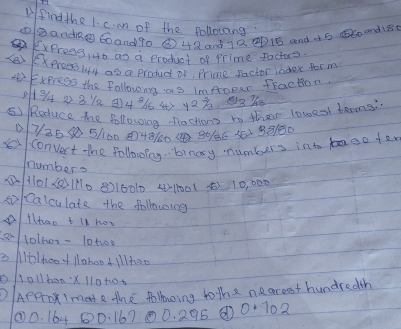 1) Find the l.c.m of the following.
and 60 and 90 42 and 72 15 and 45
Express 140 as a product of prime factors.
Express 144 as a product of prime factor index form
4) Express the following as improper fraction.
1 3/4 2) 3 1/2 3) 4 4) 42
5) Reduce the following fractions to their lowest terms:
5/100 3) 48/60
6) Convert the following binary numbers into base ten
numbers
1101 1110 3) 10010 4) 1001 10,000
Calculate the following
11two + 11two
101two - 10two
3. 1101two + 110two + 111two
101two X 110two
Approximate the following to the nearest hundredth
a) 0.164 b) 0.167 c) 0.295 d) 0.702